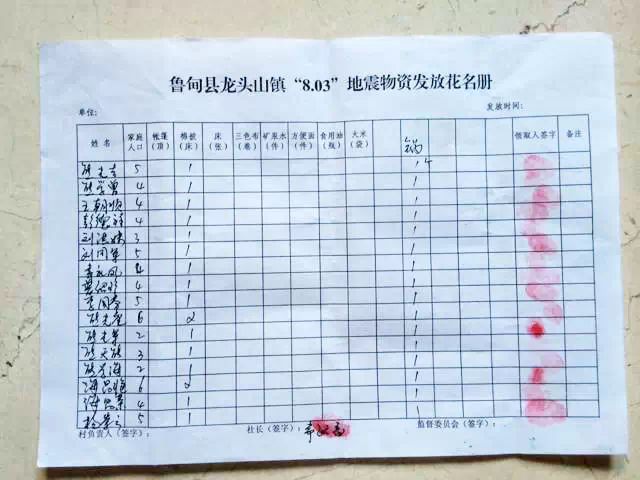 鲁甸县龙头山镇“8.03”地震物资发放花名册
单位: 发放时间:
姓名 家庭人口 帐篷(顶) 棉被(床) 床(张) 三色布(卷) 矿泉水(件) 方便面(件) 食用油(瓶) 大米(袋) 锅 领取人签字 备注
熊光吉 5 1 1个
熊学曾 4 1 1
王朝顺 4 1 1
彭德 4 1 1
刘洪 3 1 1
刘周 5 1 1
李永凤 4 1 1
4 1 1
李国 5 1 1
熊光 6 2 1
熊光 2 1 1
熊天 3 1 1
熊 2 1 1
海 6 2 1
海 4 1 1
杨 5 1 1
村负责人(签字): 社长(签字): 监督委员会(签字):